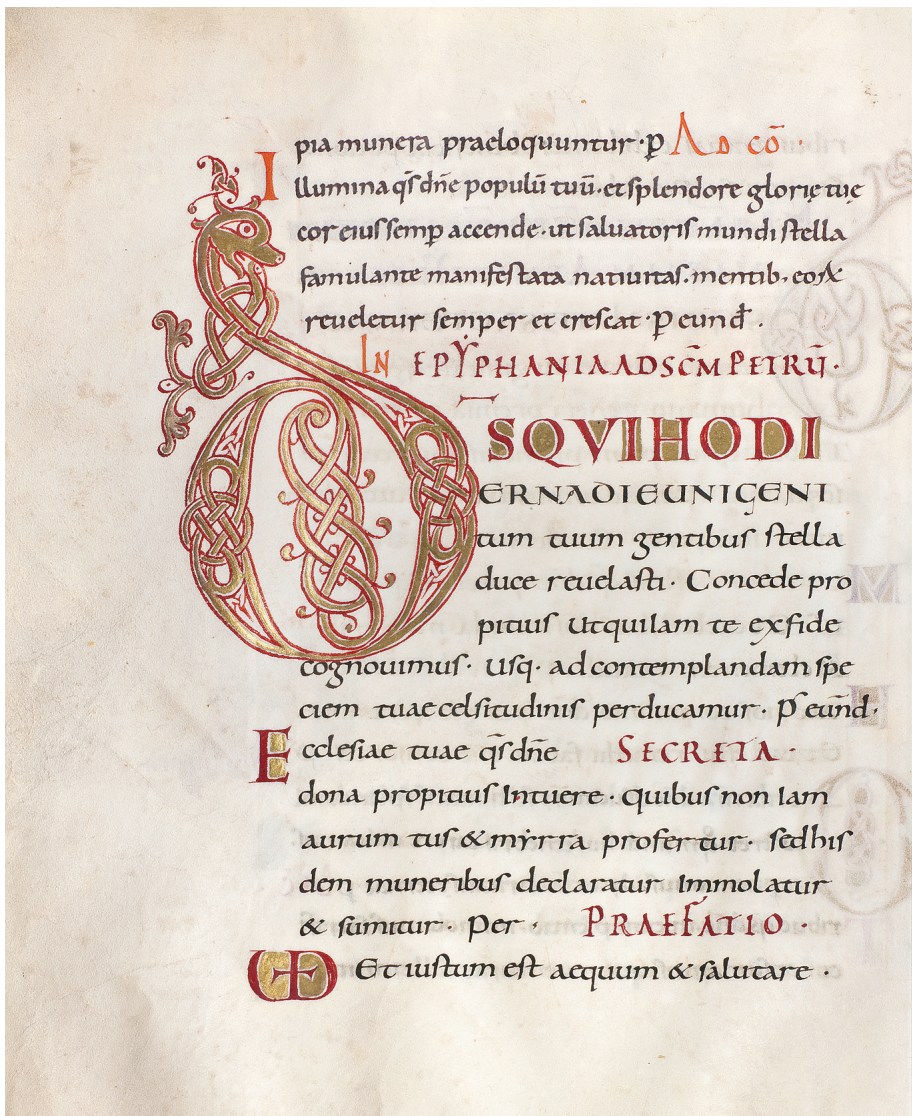 pia munera praeloquuntur · p̲ Ad cō ·
Illumina qs̄ dn̄e populū tuū · et splendore glorię tuę
cor eius semp̲ accende · ut saluatoris mundi stella
famulante manifestata natiuitas · mentib · eoꝝ
reueletur semper et crescat · P̲ eund̄ ·
IN EPẎPHANIA AD SC̄M PETRŪ ·
D̄S QVI HODI
ERNA DIE UNIGENI
tum tuum gentibus stella
duce reuelasti · Concede pro
pitius ut qui iam te ex fide
cognouimus · usq · ad contemplandam spe
ciem tuae celsitudinis perducamur · P̲ eund̄ ·
Ecclesiae tuae qs̄ dn̄e SECRETA ·
dona propitius intuere · quibus non iam
aurum tus & mẏrra profertur · sed his
dem muneribus declaratur immolatur
& sumitur · Per · PRAEFATIO ·
Et iustum est aequum & salutare ·